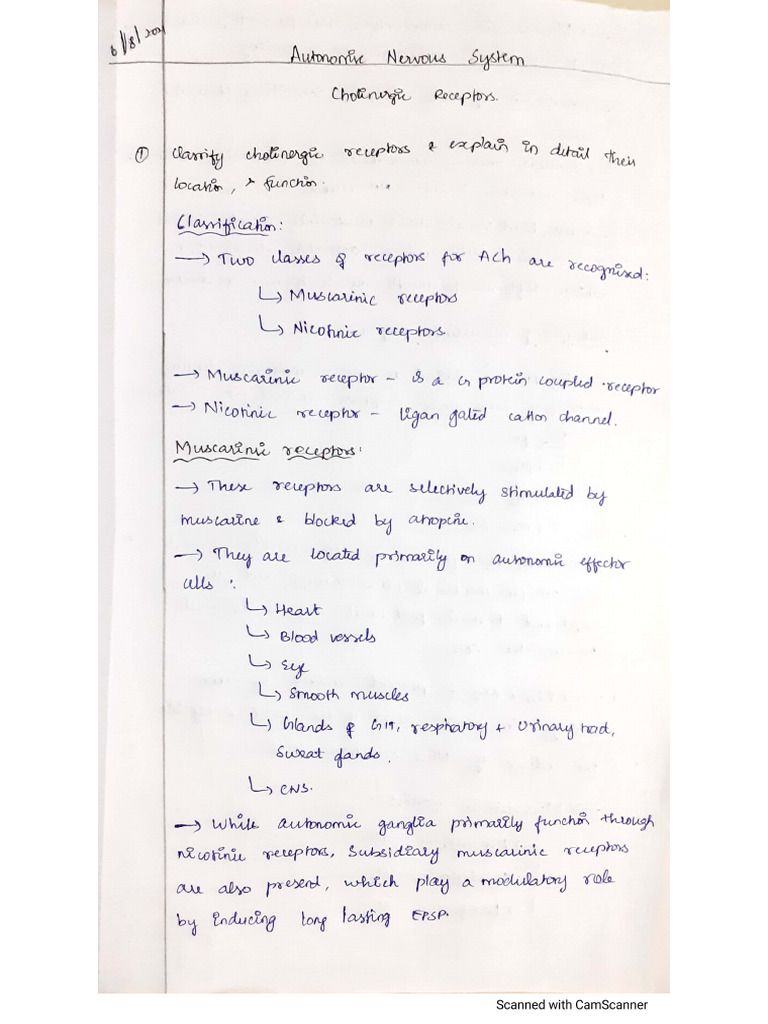 6/8/2021
Autonomic Nervous System
Cholinergic Receptors.
① Classify cholinergic receptors & explain in detail their
location, & function.
Classification:
→ Two classes of receptors for ACh are recognised:
↳ Muscarinic receptors
↳ Nicotinic receptors
→ Muscarinic receptor – is a G protein coupled receptor
→ Nicotinic receptor – ligan gated cation channel.
Muscarinic receptors:
→ These receptors are selectively stimulated by
muscarine & blocked by atropine.
→ They are located primarily on autonomic effector
cells :
↳ Heart
↳ Blood vessels
↳ Eye
↳ Smooth muscles
↳ Glands of GIT, respiratory + Urinary tract,
Sweat glands.
↳ CNS.
→ While autonomic ganglia primarily function through
nicotinic receptors, Subsidiary muscarinic receptors
are also present, which play a modulatory role
by inducing long lasting EPSP.
Scanned with CamScanner